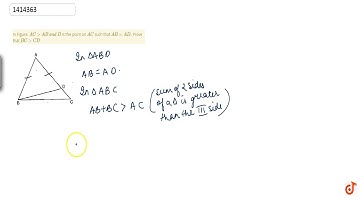 1414363
In figure, AC > AB and D is the point on AC such that AB = AD. Prove
that BC > CD
A
D
B
C
In ΔABD
AB = AD.
In ΔABC
AB+BC > AC (sum of 2 sides
of a Δ is greater
than the III side)
doubtnut